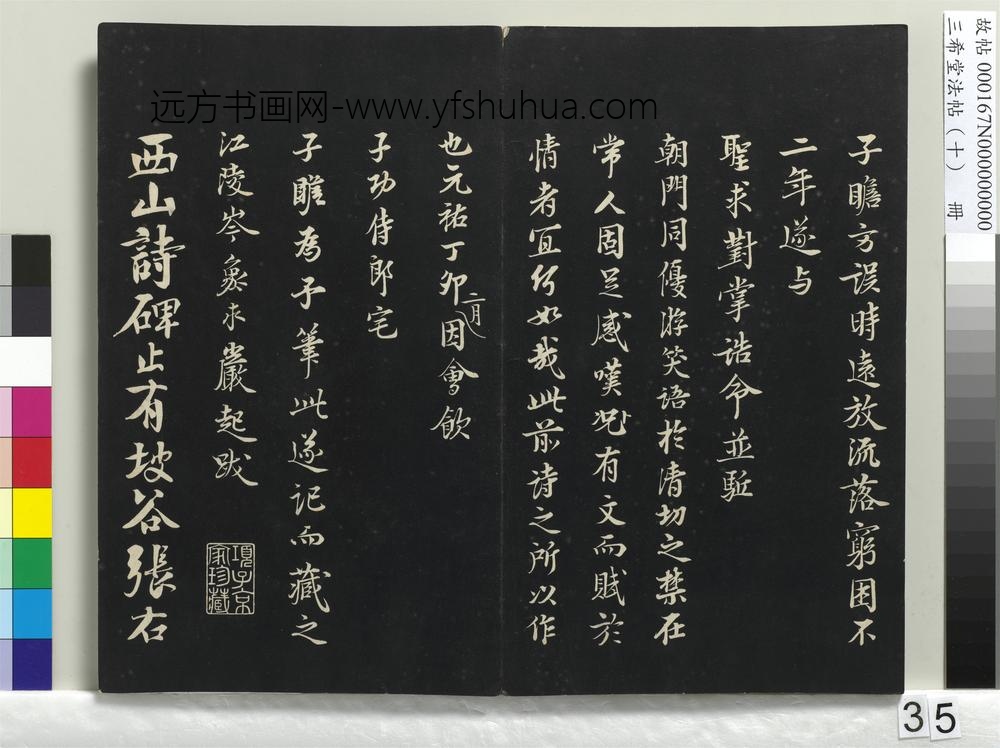 子瞻方误時遠放流落窮困不
二年遂与
聖求對掌誥命並駈
朝門同優游笑语於清切之禁在
常人固足感嘆况有文而賦於
情者宜何如哉此前诗之所以作
也元祐丁卯二月因會飲
子功侍郎宅
子雎为子筆此遂记而藏之
江陵岑象求巖起跋
項子京家珍藏
西山詩碑止有坡谷張右
远方书画网-www.yfshuhua.com
故帖000167N000000000
三希堂法帖(十) 冊
35